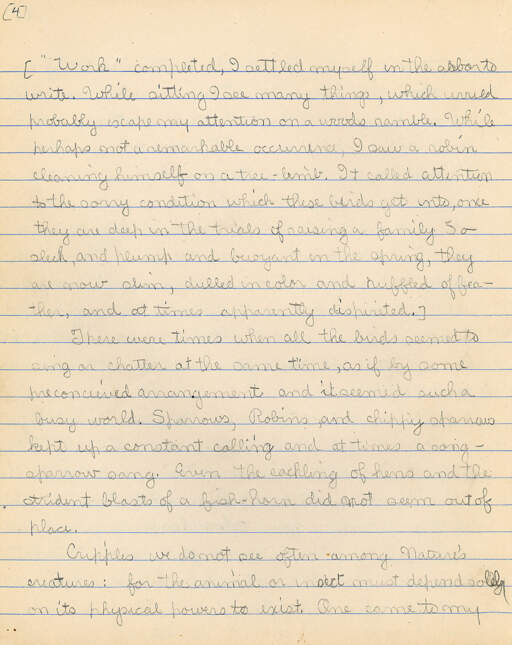 [4]
[ "Work" completed, I settled myself in the arbor to
write. While sitting I see many things, which would
probably escape my attention on a woods ramble. While
perhaps not a remarkable occurrence, I saw a robin
cleaning himself on a tree-limb. It called attention
to the sorry condition which these birds get into, once
they are deep in the trials of raising a family So
sleek, and plump and buoyant in the spring, they
are now slim, dulled in color and ruffled of fea-
ther, and at times apparently dispirited.]
There were times when all the birds seemed to
sing or chatter at the same time, as if by some
preconceived arrangement and it seemed such a
busy world. Sparrows, Robins and chippy sparrows
kept up a constant calling and at times a song-
sparrow sang. Even the cackling of hens and the
strident blasts of a fish-horn did not seem out of
place.
Cripples we do not see often among Nature's
creatures: for the animal or insect must depend solely
on its physical powers to exist. One came to my